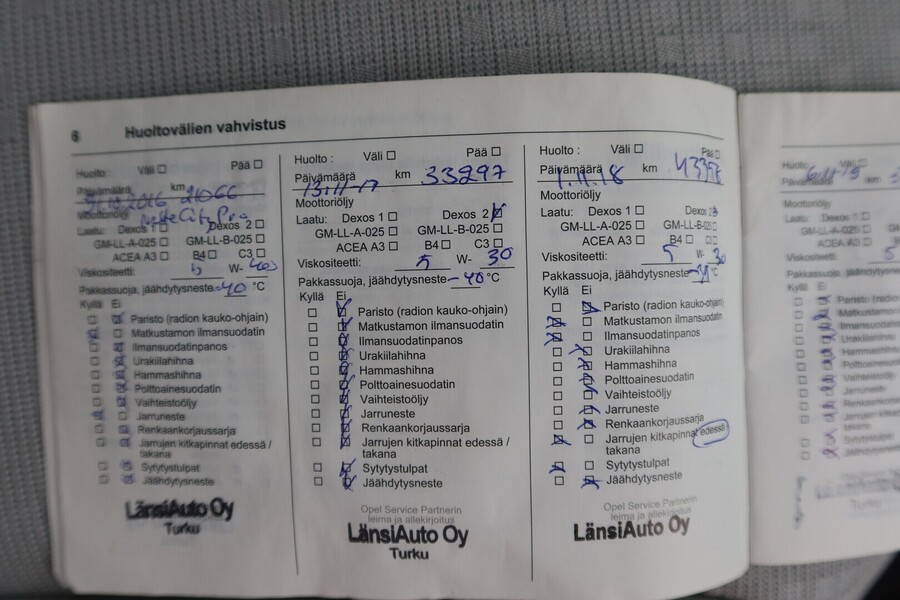 6 Huoltovälien vahvistus
Huolto : Väli ☐ Pää ☐
Päivämäärä km 21066
Moottoriöljy
Laatu: Dexos 1 ☐ Dexos 2 ☐
GM-LL-A-025 ☐ GM-LL-B-025 ☐
ACEA A3 ☐ B4 ☐ C3 ☐
Viskositeetti: 5 W-
Pakkassuoja, jäähdytysneste -40 °C
Kyllä Ei
Paristo (radion kauko-ohjain)
Matkustamon ilmansuodatin
Ilmansuodatinpanos
Urakiilahihna
Hammashihna
Polttoainesuodatin
Vaihteistoöljy
Jarruneste
Renkaankorjaussarja
Jarrujen kitkapinnat edessä /
takana
Sytytystulpat
Jäähdytysneste
LänsiAuto Oy
Turku
Huolto : Väli ☐ Pää ☐
Päivämäärä km 33297
13.11-17
Moottoriöljy
Laatu: Dexos 1 ☐ Dexos 2 ☒
GM-LL-A-025 ☐ GM-LL-B-025 ☐
ACEA A3 ☐ B4 ☐ C3 ☐
Viskositeetti: 5 W- 30
Pakkassuoja, jäähdytysneste -40 °C
Kyllä Ei
Paristo (radion kauko-ohjain)
Matkustamon ilmansuodatin
Ilmansuodatinpanos
Urakiilahihna
Hammashihna
Polttoainesuodatin
Vaihteistoöljy
Jarruneste
Renkaankorjaussarja
Jarrujen kitkapinnat edessä /
takana
Sytytystulpat
Jäähdytysneste
Opel Service Partnerin
leima ja allekirjoitus
LänsiAuto Oy
Turku
Huolto : Väli ☐ Pää ☐
Päivämäärä km
1.11.18
Moottoriöljy
Laatu: Dexos 1 ☐ Dexos 2
GM-LL-A-025 ☐ GM-LL-B-025 ☐
ACEA A3 ☐ B4 ☐
Viskositeetti: 5 W- 30
Pakkassuoja, jäähdytysneste °C
Kyllä Ei
Paristo (radion kauko-ohjain)
Matkustamon ilmansuodatin
Ilmansuodatinpanos
Urakiilahihna
Hammashihna
Polttoainesuodatin
Vaihteistoöljy
Jarruneste
Renkaankorjaussarja
Jarrujen kitkapinnat edessä
takana
Sytytystulpat
Jäähdytysneste
Opel Service Partnerin
leima ja allekirjoitus
LänsiAuto Oy
Huolto : Väli
Päivämäärä
Moottoriöljy
Laatu: Dexos 1 ☐
GM-LL-A-025 ☐
ACEA A3 ☐
Viskositeetti: 5
Pakkassuoja, jäähdytysneste
Kyllä Ei
Paristo (radion
Matkustamon
Ilmansuodatin
Urakiilahihna
Hammashihna
Polttoaine
Vaihteistoöljy
Jarruneste
Renkaankorj
Jarrujen kitkap
takana
Sytytystulpat
Jäähdytysneste